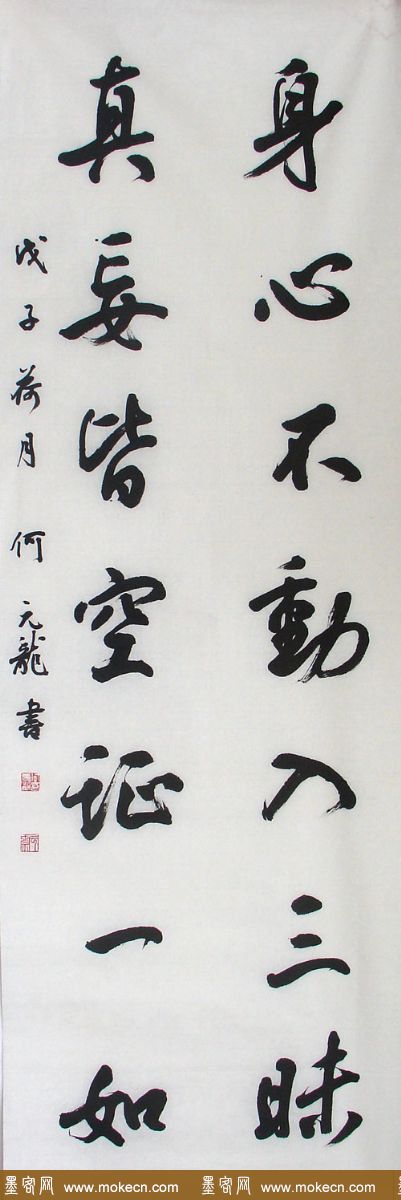 身心不動入三昧
真妄皆空证一如
戊子荷月 何元龍書
墨客网 www.mokecn.com 墨客网 www.mokecn.com